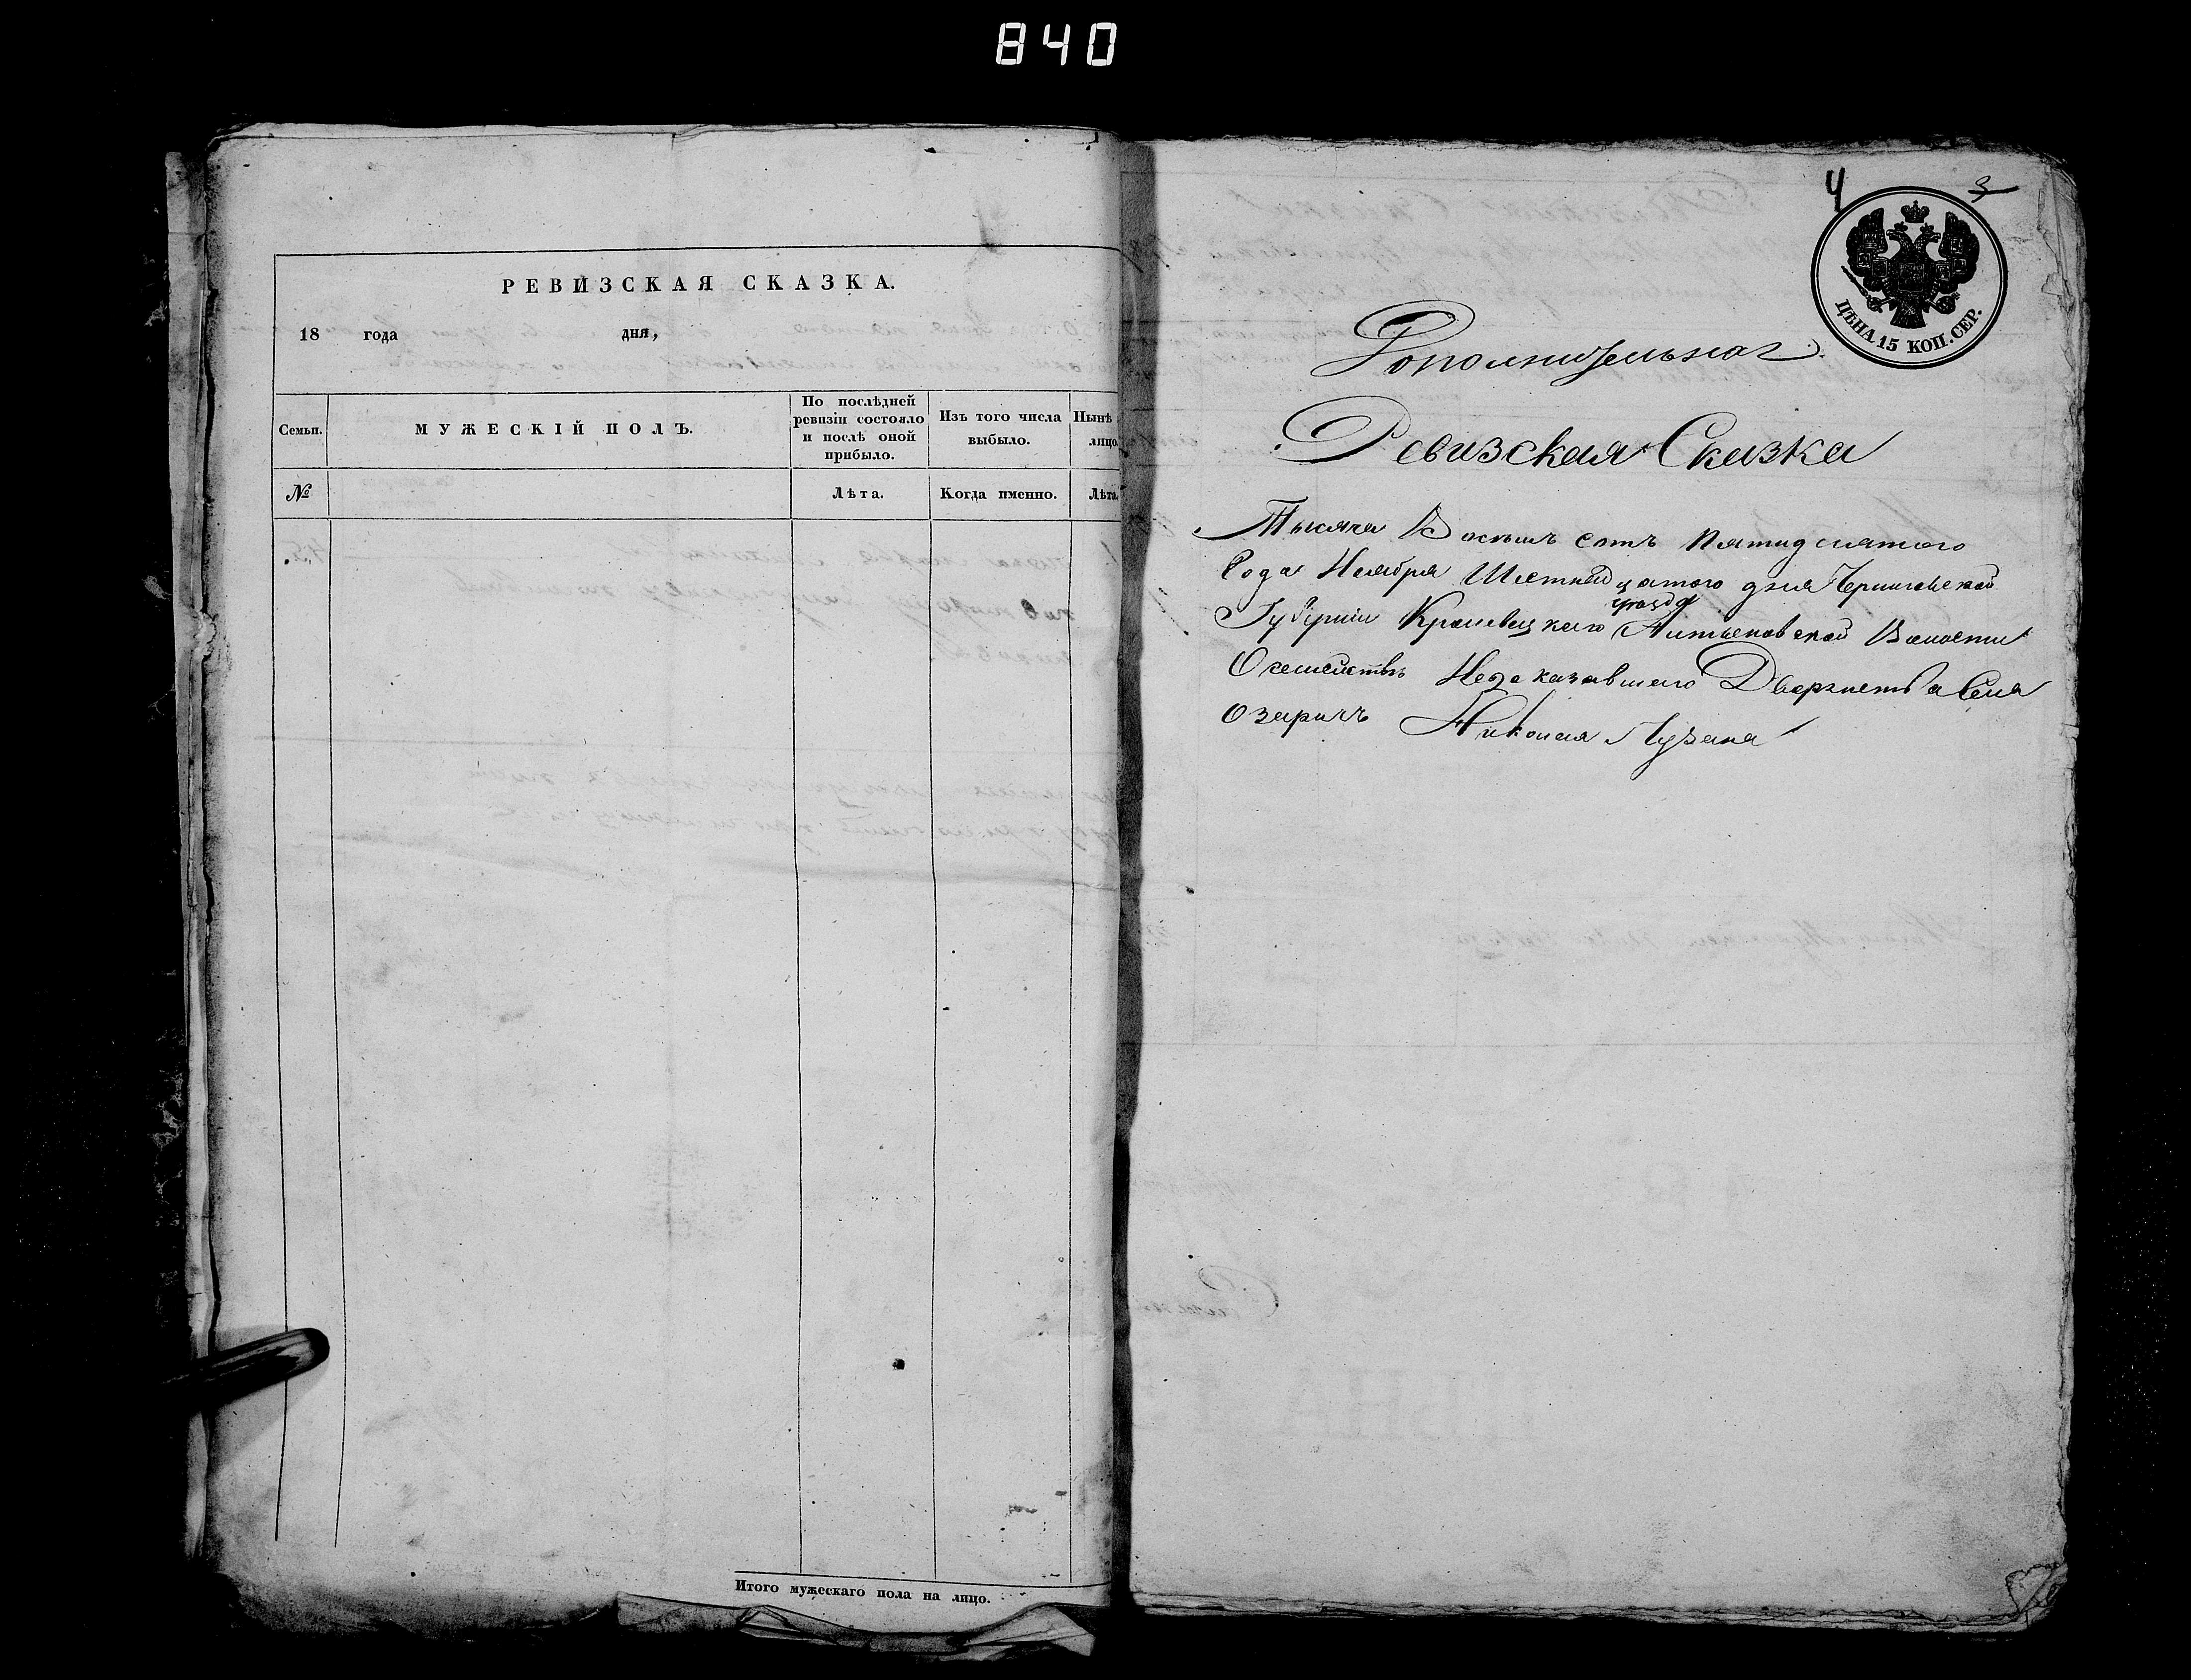 840
РЕВИЗСКАЯ СКАЗКА.
18 года дня,
Семьи.
МУЖЕСКІЙ ПОЛЪ.
По послѣдней ревизіи состояло и послѣ оной прибыло.
Изъ того числа выбыло.
Нынѣ лицо
№
Лѣта.
Когда именно.
Лѣта.
Итого мужескаго пола на лицо.
4 3
ЦѢНА 15 КОП. СЕР.
Дополнительная
Ревизская Сказка
Тысяча Восемь сотъ Пятидесятого
Года Ноября дня Черниговской
Губерніи Кролевецкого уѣзда Волости
О семействѣ Недоказавшего Дворянства Села
Озаричъ Николая Лузана